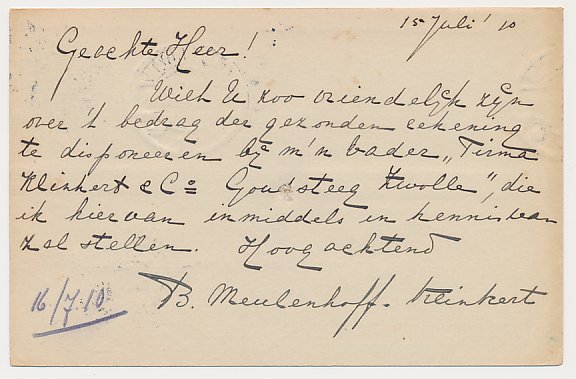 15 Juli '10
Geachte Heer!
Wilt U zoo vriendelijk zijn
over 't bedrag der gezonden rekening
te disponeeren bij m'n vader „Firma
Klinkert & Co Goudsteeg Zwolle", die
ik hiervan inmiddels in kennis van
zal stellen. Hoogachtend
B. Meulenhoff-Klinkert
16/7.10